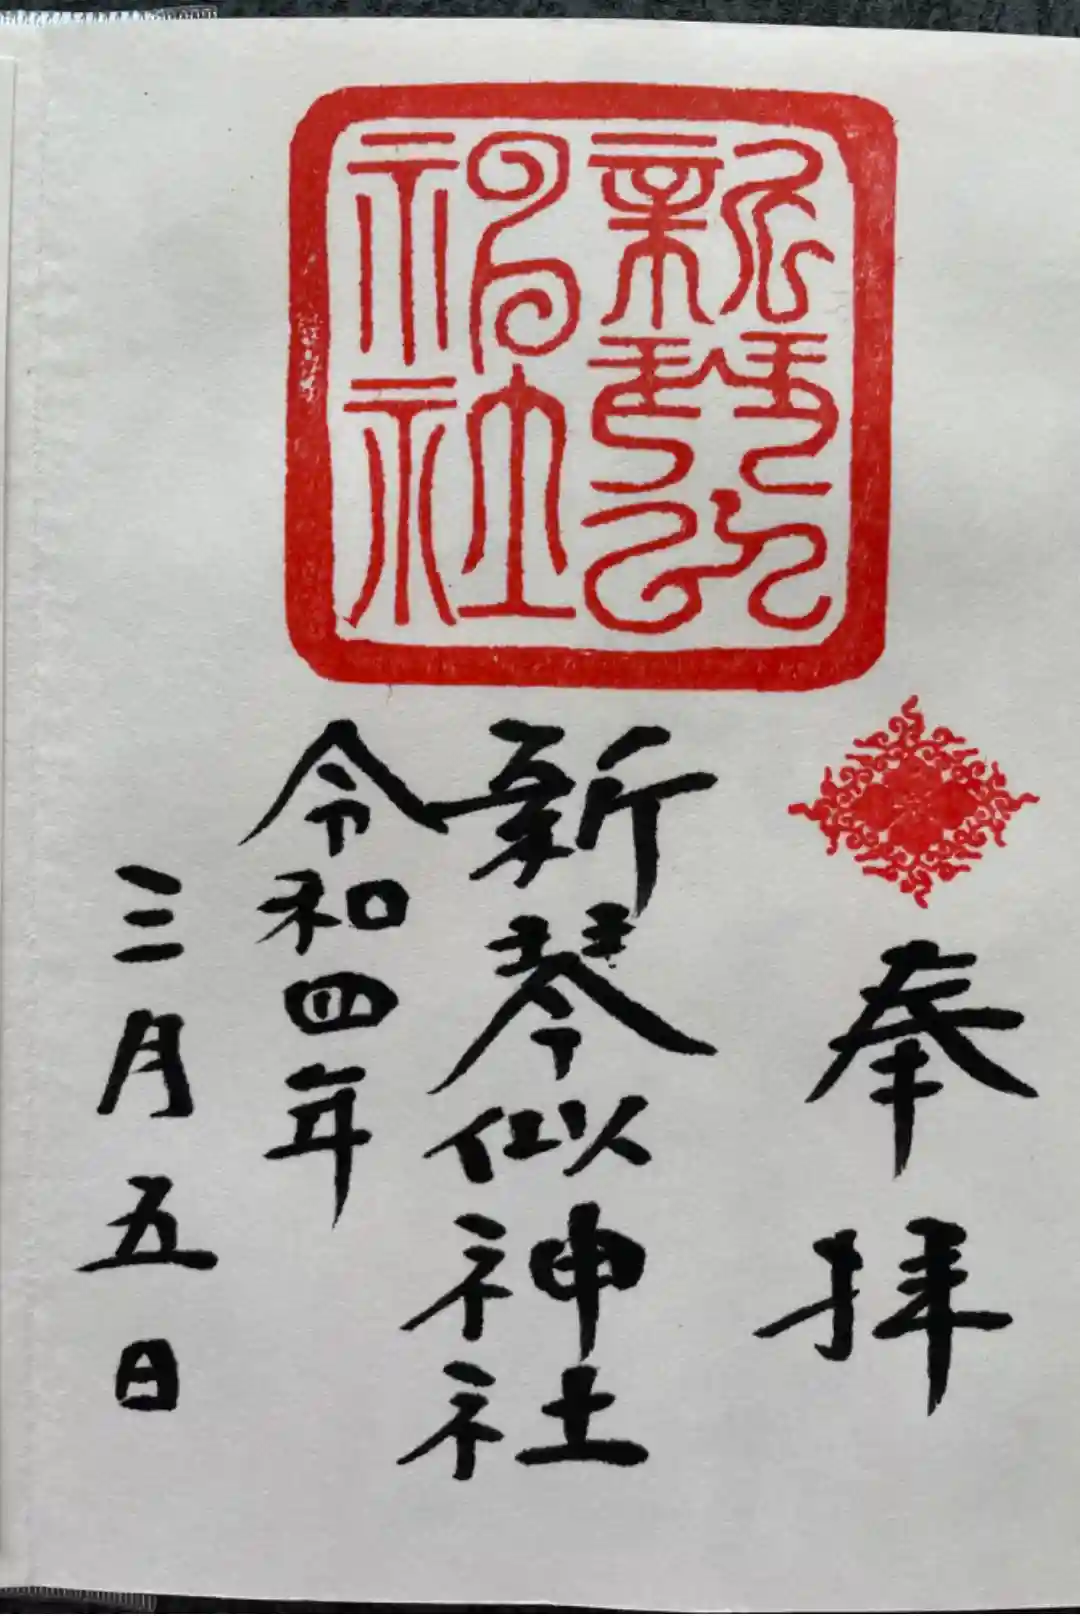 新琴似
神社
奉拝
新琴似神社
令和四年
三月五日